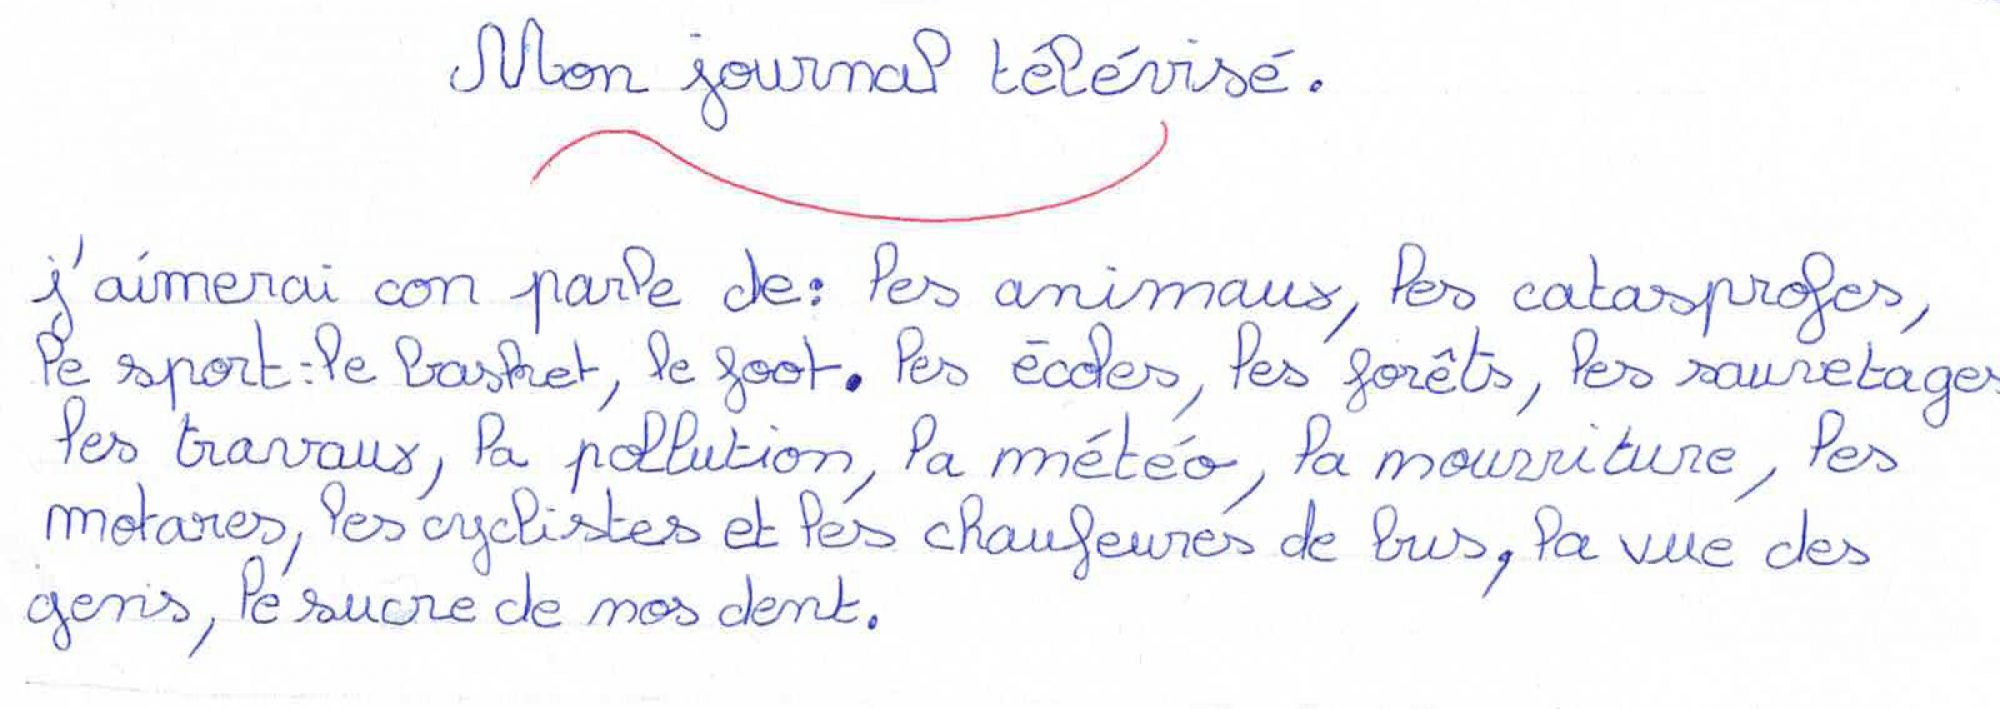 Mon journal télévisé.
j'aimerai con parle de: les animaux, les catasprofes,
le sport: le basket, le foot. les écoles, les forêts, les sauvetages
les travaux, la pollution, la météo, la nourriture, les
motares, les cyclistes et les chaufeures de bus, la vue des
gens, le sucre de nos dent.